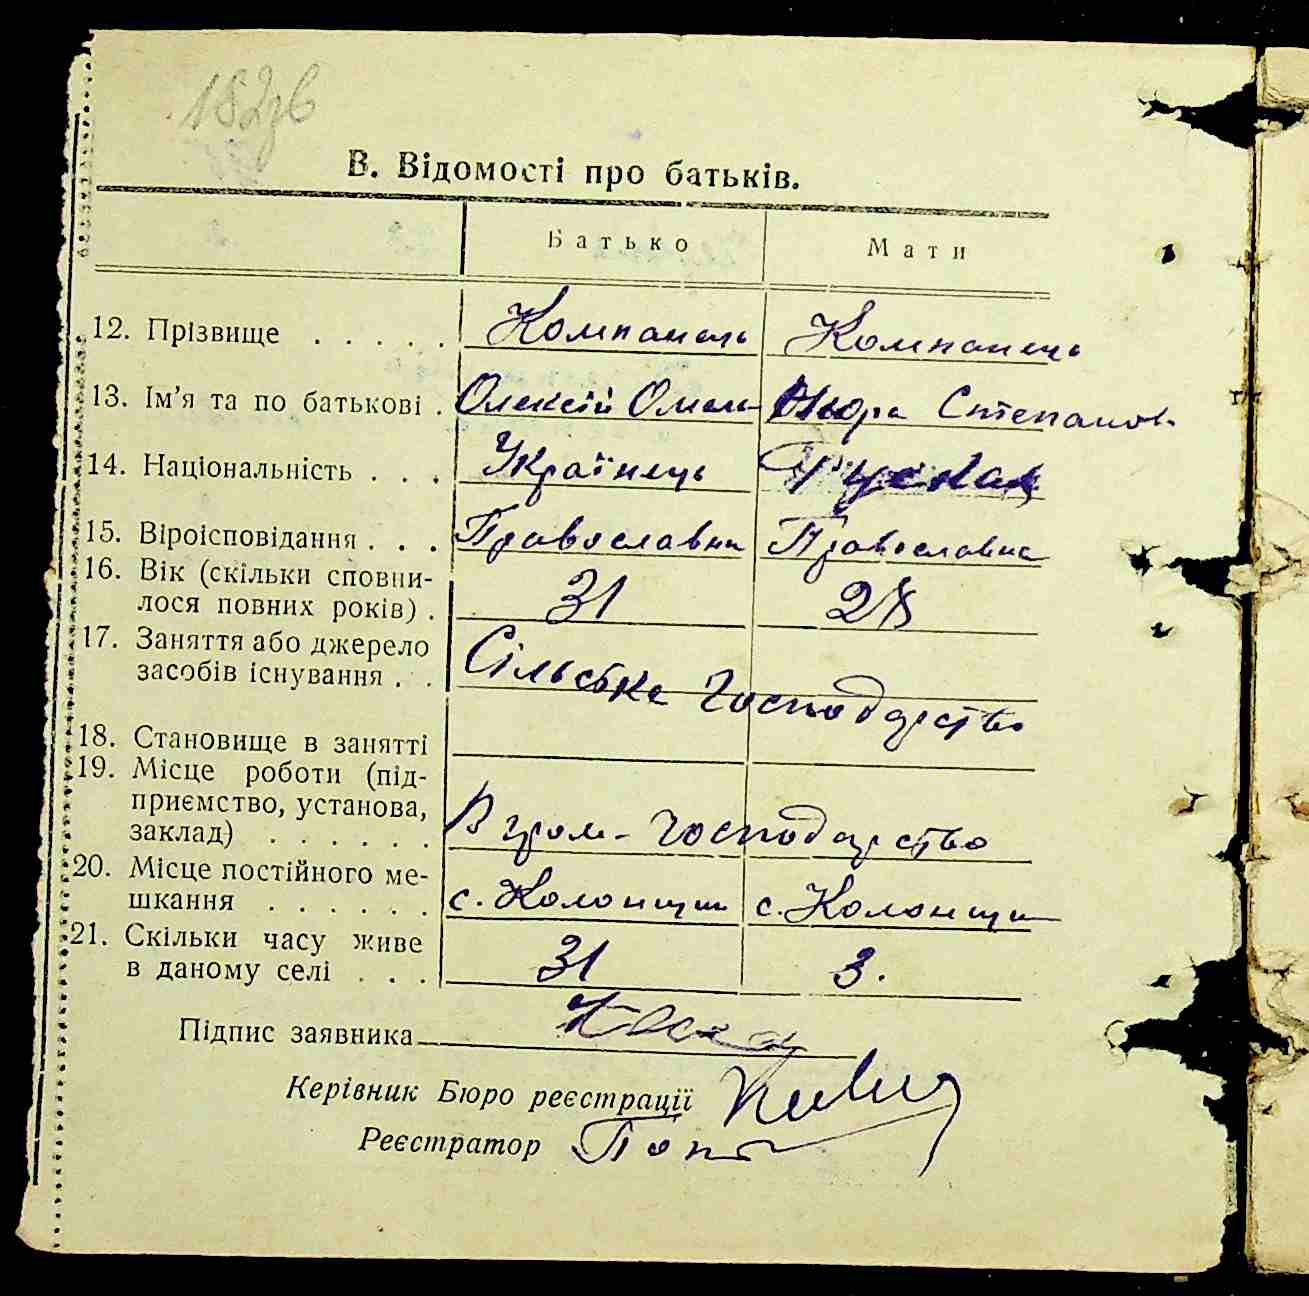 182зв
В. Відомості про батьків.
Батько Мати
12. Прізвище . . . . . Компанець Компанець
13. Ім'я та по батькові . Олексій Омель Нюра Степанов
14. Національність . . . Українець Руская
15. Віроісповідання . . . Православни Православна
16. Вік (скільки сповни-
лося повних років) . 31 28
17. Заняття або джерело
засобів існування . . Сільське господарство
18. Становище в занятті
19. Місце роботи (під-
приємство, установа,
заклад) . . . . . . В гром- господарство
20. Місце постійного ме-
шкання . . . . . . с. Колонщи с. Колонщи
21. Скільки часу живе
в даному селі . . . 31 3.
Підпис заявника
Керівник Бюро реєстрації
Реєстратор Поп